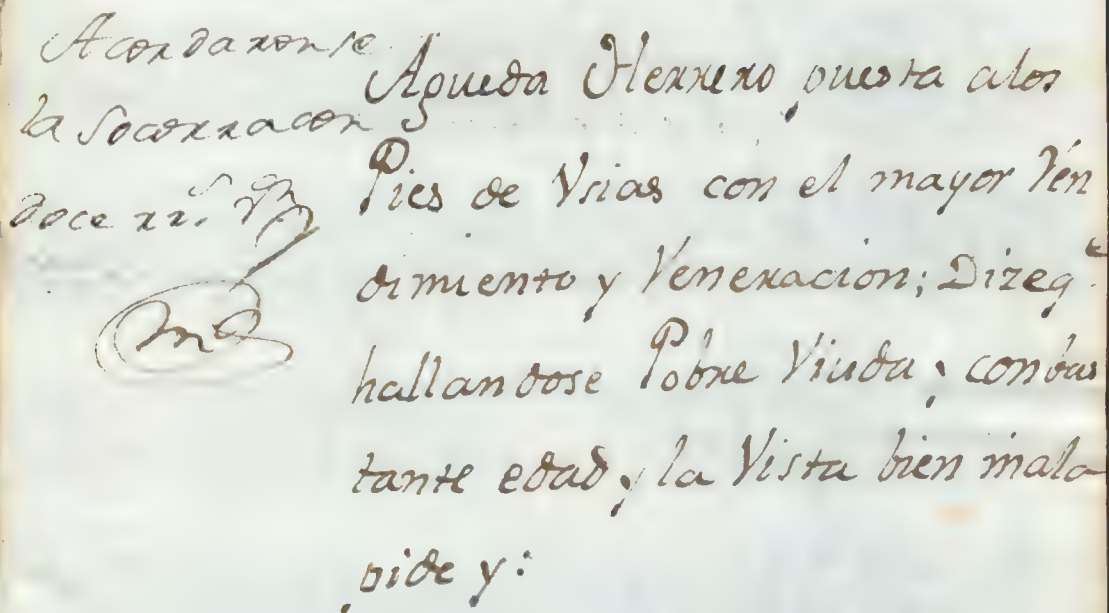 Acordaronse
la Socorra con
doce rr.s
Agueda Herrero puesta alos
Pies de Vsias con el mayor Ren
dimiento y Veneracion; Dize q.e
hallandose Pobre Viuda, con bas
tante edad, y la Vista bien mala
pide y: